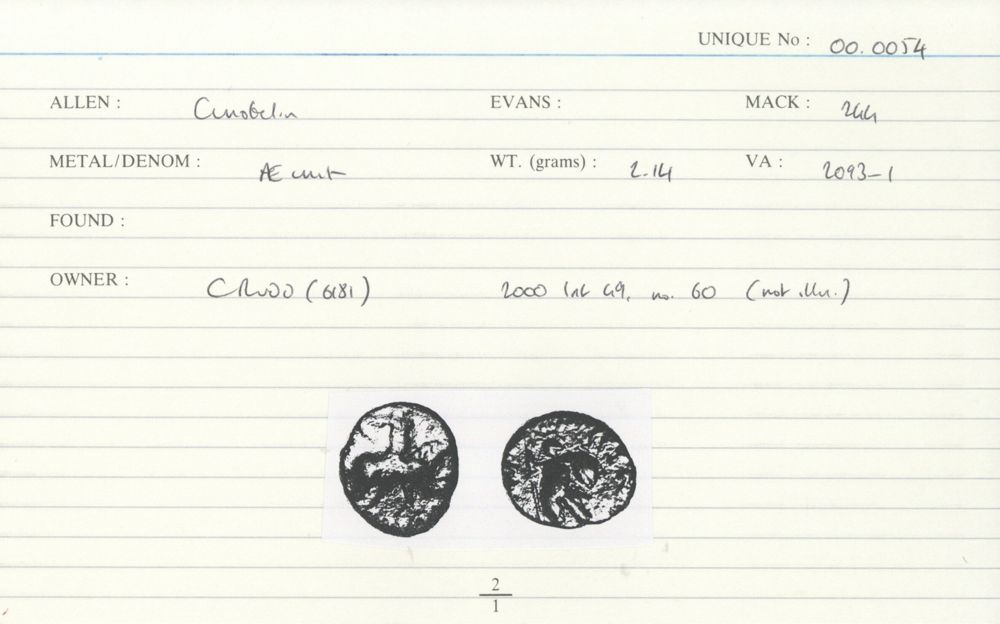 UNIQUE No : 00.0054
ALLEN : Cunobelin EVANS : MACK : 244
METAL/DENOM : Æ unit WT. (grams) : 2.14 VA : 2093-1
FOUND :
OWNER : CRUDD (6181) 2000 list 49, no. 60 (not illu.)
2
1